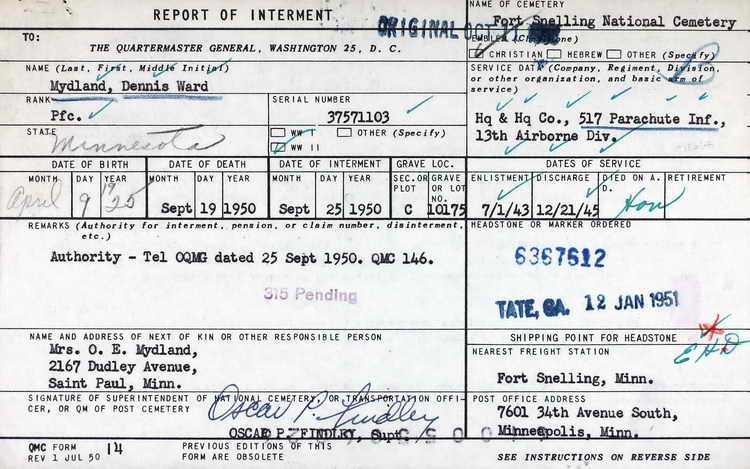 REPORT OF INTERMENT
ORIGINAL OCT 11
NAME OF CEMETERY
Fort Snelling National Cemetery
TO:
THE QUARTERMASTER GENERAL, WASHINGTON 25, D. C.
EMBLEM (Check one)
CHRISTIAN HEBREW OTHER (Specify)
NAME (Last, First, Middle Initial)
Mydland, Dennis Ward
SERVICE DATA (Company, Regiment, Division,
or other organization, and basic arm of
service)
RANK
Pfc.
SERIAL NUMBER
37571103
Hq & Hq Co., 517 Parachute Inf.,
13th Airborne Div.
STATE
Minnesota
WW I OTHER (Specify)
WW II
DATE OF BIRTH
DATE OF DEATH
DATE OF INTERMENT
GRAVE LOC.
DATES OF SERVICE
MONTH DAY YEAR MONTH DAY YEAR MONTH DAY YEAR SEC.OR PLOT GRAVE OR LOT NO. ENLISTMENT DISCHARGE DIED ON A. D. RETIREMENT
April 9 1925 Sept 19 1950 Sept 25 1950 C 10175 7/1/43 12/21/45 Hon
REMARKS (Authority for interment, pension, or claim number, disinterment,
etc.)
Authority - Tel OQMG dated 25 Sept 1950. QMC 146.
315 Pending
HEADSTONE OR MARKER ORDERED
6367612
TATE, GA. 12 JAN 1951
NAME AND ADDRESS OF NEXT OF KIN OR OTHER RESPONSIBLE PERSON
Mrs. O. E. Mydland,
2167 Dudley Avenue,
Saint Paul, Minn.
SHIPPING POINT FOR HEADSTONE
EHD
NEAREST FREIGHT STATION
Fort Snelling, Minn.
SIGNATURE OF SUPERINTENDENT OF NATIONAL CEMETERY, OR TRANSPORTATION OFFI-
CER, OR QM OF POST CEMETERY
Oscar P. Findley
OSCAR P. FINDLEY, Supt.
POST OFFICE ADDRESS
7601 34th Avenue South,
Minneapolis, Minn.
QMC FORM 14
REV 1 JUL 50
PREVIOUS EDITIONS OF THIS
FORM ARE OBSOLETE
SEE INSTRUCTIONS ON REVERSE SIDE